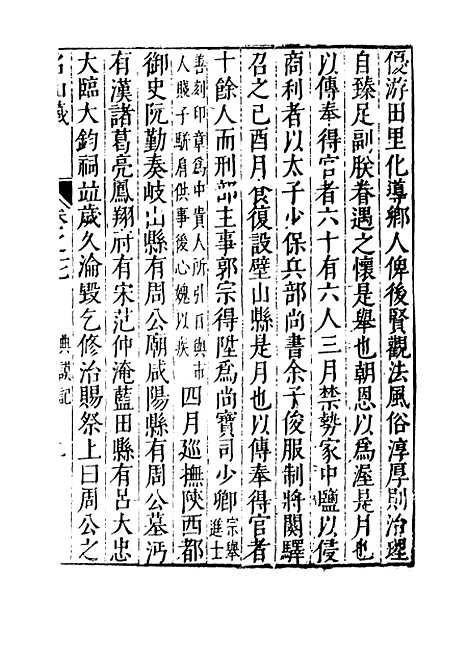 優游田里化導鄉人俾後賢觀法風俗淳厚則治理
自臻足副朕眷遇之懷是舉也朝恩以爲渥是月也
以傳奉得官者六十有六人三月禁勢家中鹽以侵
商利者以太子少保兵部尚書余子俊服制將闋驛
召之己酉月食復設壁山縣是月也以傳奉得官者
十餘人而刑部主事郭宗得陞爲尚寶司少卿宗舉進士
善刻印章爲中貴人所引日與市
人賤子騈肩供事後心媿以疾
四月巡撫陝西都
御史阮勤奏岐山縣有周公廟咸陽縣有周公墓沔
有漢諸葛亮鳳翔府有宋范仲淹藍田縣有呂大忠
大臨大鈞祠並歲久淪毀乞修治賜祭上曰周公之
名山藏
卷之
典謨記